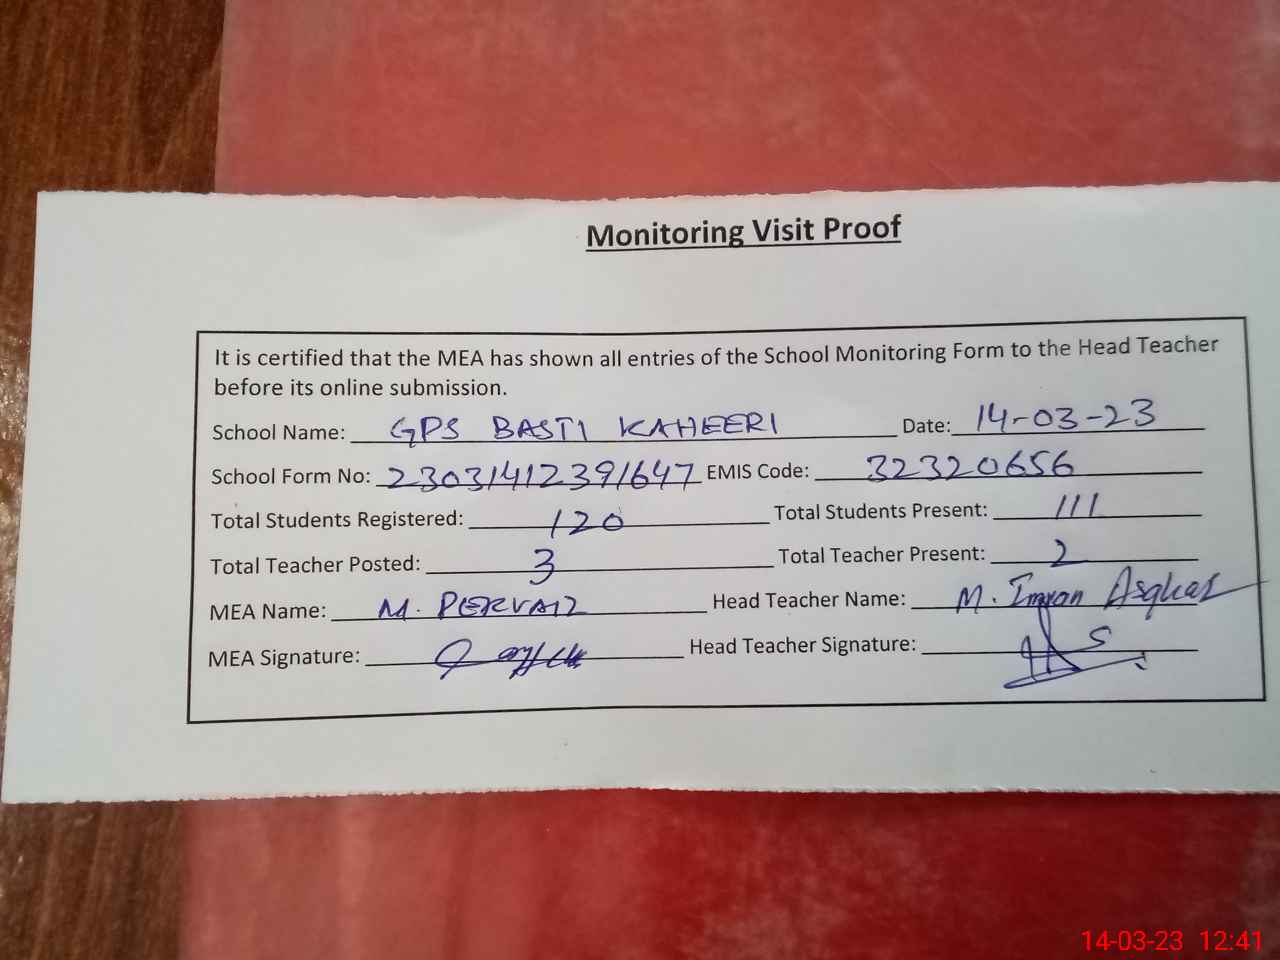 Monitoring Visit Proof
It is certified that the MEA has shown all entries of the School Monitoring Form to the Head Teacher
before its online submission.
School Name: GPS BASTI KAHEERI Date: 14-03-23
School Form No: 23031412391647 EMIS Code: 32320656
Total Students Registered: 120 Total Students Present: 111
Total Teacher Posted: 3 Total Teacher Present: 2
MEA Name: M. PERVAIZ Head Teacher Name: M. Imran Asghar
MEA Signature: Head Teacher Signature:
14-03-23 12:41